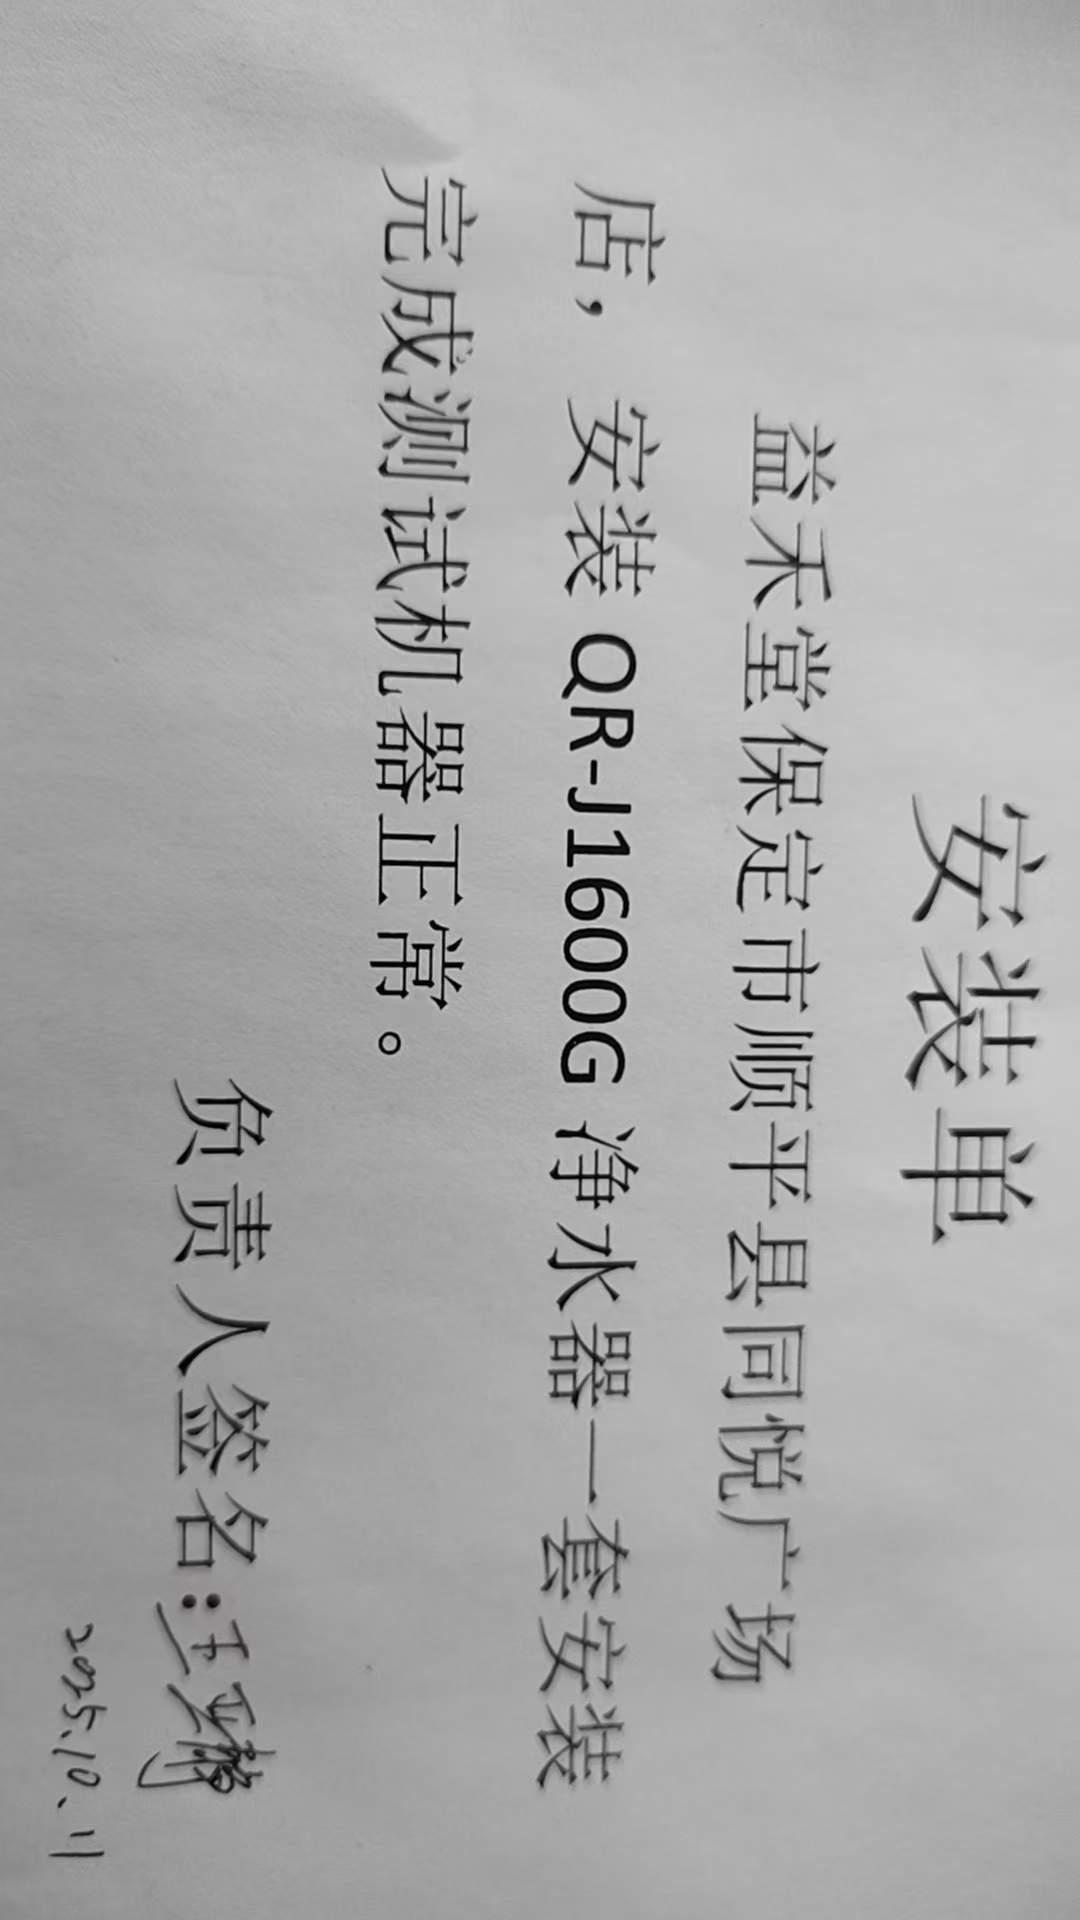 安装单
益禾堂保定市顺平县同悦广场
店，安装 QR-J1600G 净水器一套安装
完成测试机器正常。
负责人签名:王
2025.10.11